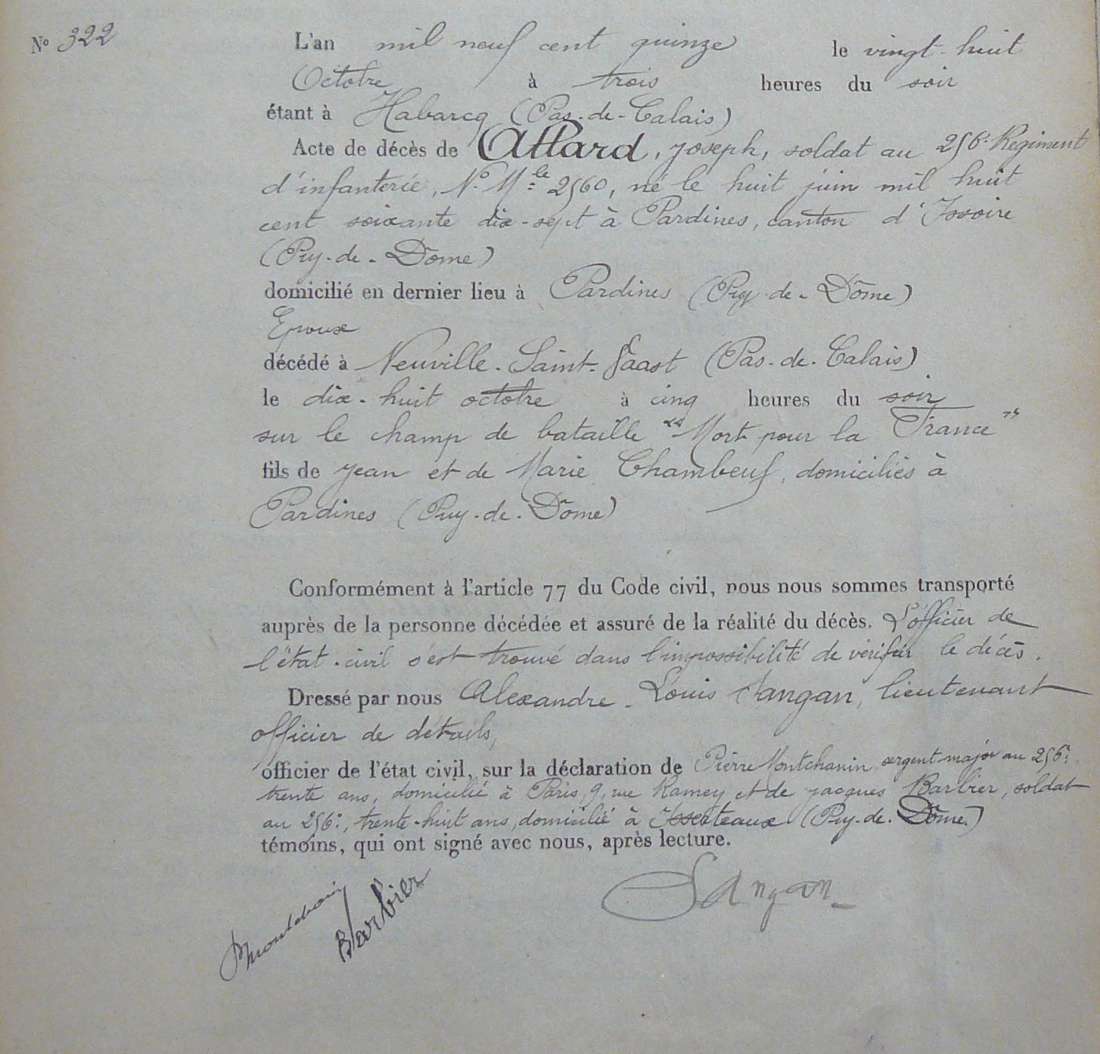 N° 322
L'an mil neuf cent quinze le vingt-huit
Octobre à trois heures du soir
étant à Habarcq (Pas-de-Calais)
Acte de décès de Allard, Joseph, soldat au 256e Régiment
d'infanterie, N° Mle 2560, né le huit juin mil huit
cent soixante dix-sept à Pardines, canton d'Issoire
(Puy-de-Dôme)
domicilié en dernier lieu à Pardines (Puy-de-Dôme)
Epoux
décédé à Neuville-Saint-Vaast (Pas-de-Calais)
le dix-huit octobre à cinq heures du soir
sur le champ de bataille "Mort pour la France"
fils de Jean et de Marie Chambeuf, domiciliés à
Pardines (Puy-de-Dôme)
Conformément à l'article 77 du Code civil, nous nous sommes transporté
auprès de la personne décédée et assuré de la réalité du décès. L'officier de
l'état-civil s'est trouvé dans l'impossibilité de vérifier le décès.
Dressé par nous Alexandre-Louis Sangan, lieutenant
officier de détails,
officier de l'état civil, sur la déclaration de Pierre Montchanin sergent-major au 256e
trente ans, domicilié à Paris, 9, rue Ramey et de Jacques Barbier, soldat
au 256e, trente-huit ans, domicilié à Isserteaux (Puy-de-Dôme)
témoins, qui ont signé avec nous, après lecture.
PMontchanin
Barbier
Sangan